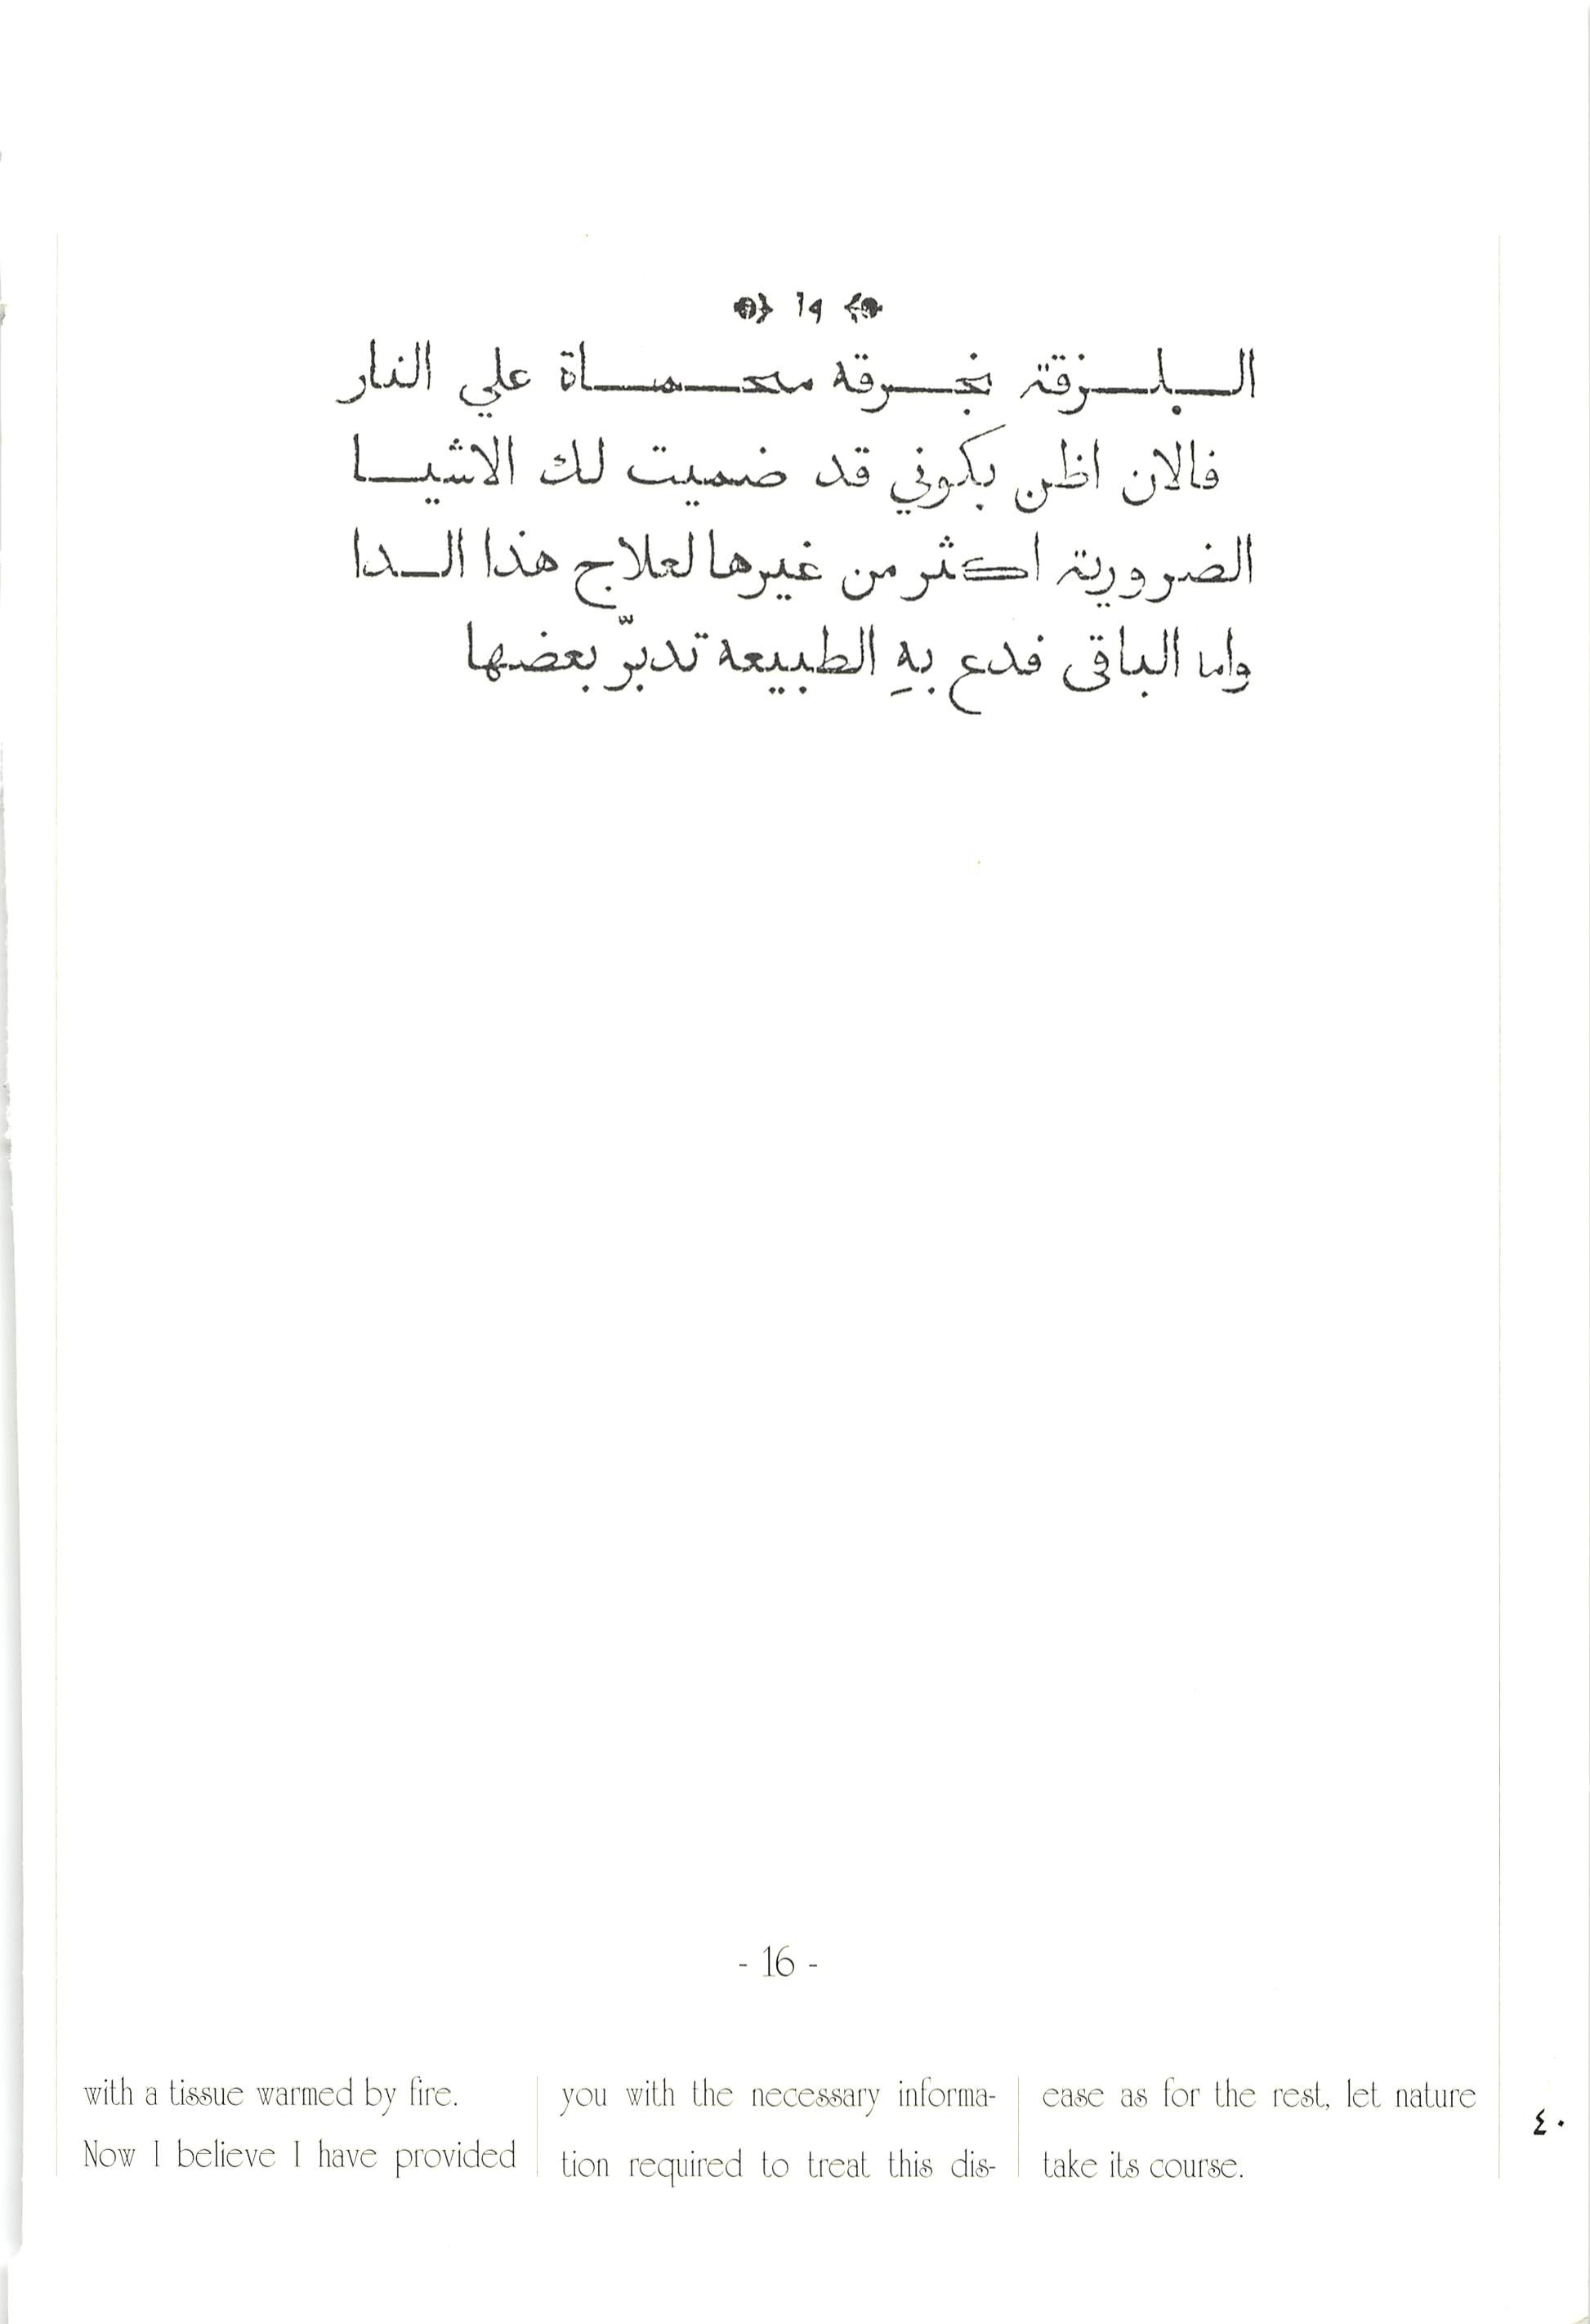 ١٦
البلزقة بخرقه محماة علي النار
فالان اظن بكوني قد ضميت لك الاشيا
الضرورية اكثر من غيرها لعلاج هذا الدا
واما الباقى فدع بهِ الطبيعه تدبّر بعضها
- 16 -
with a tissue warmed by fire.
Now I believe I have provided
you with the necessary informa-
tion required to treat this dis-
ease as for the rest, let nature
take its course.
٤٠